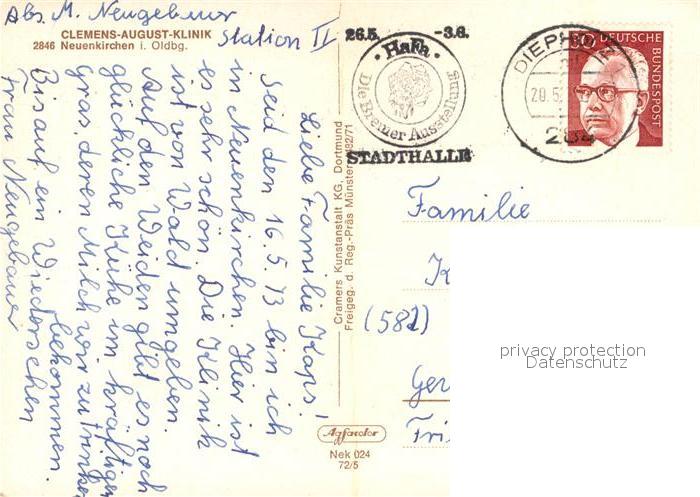 Abs. M. Neugebauer
Station II
CLEMENS-AUGUST-KLINIK
2846 Neuenkirchen i. Oldbg.
Liebe Familie Kops!
Seid den 16.5.73 bin ich
in Neuenkirchen. Hier ist
es sehr schön. Die Klinik
ist von Wald umgeben.
Auf den Weiden gibt es noch
glückliche Kühe im kräftigen
Gras deren Milch wir zu trinken
bekommen.
Bis auf ein Wiedersehen
Frau Neugebauer
Cramers Kunstanstalt KG. Dortmund
Freigeg. d. Reg.-Präs Münster
Agfacolor
Nek 024
72/5
26.5. -3.6.
HaFa
Die Bremer Ausstellung
STADTHALLE
DIEPHOLZ
284
DEUTSCHE
BUNDESPOST
Familie
K
(582)
Ger
Fri
privacy protection
Datenschutz